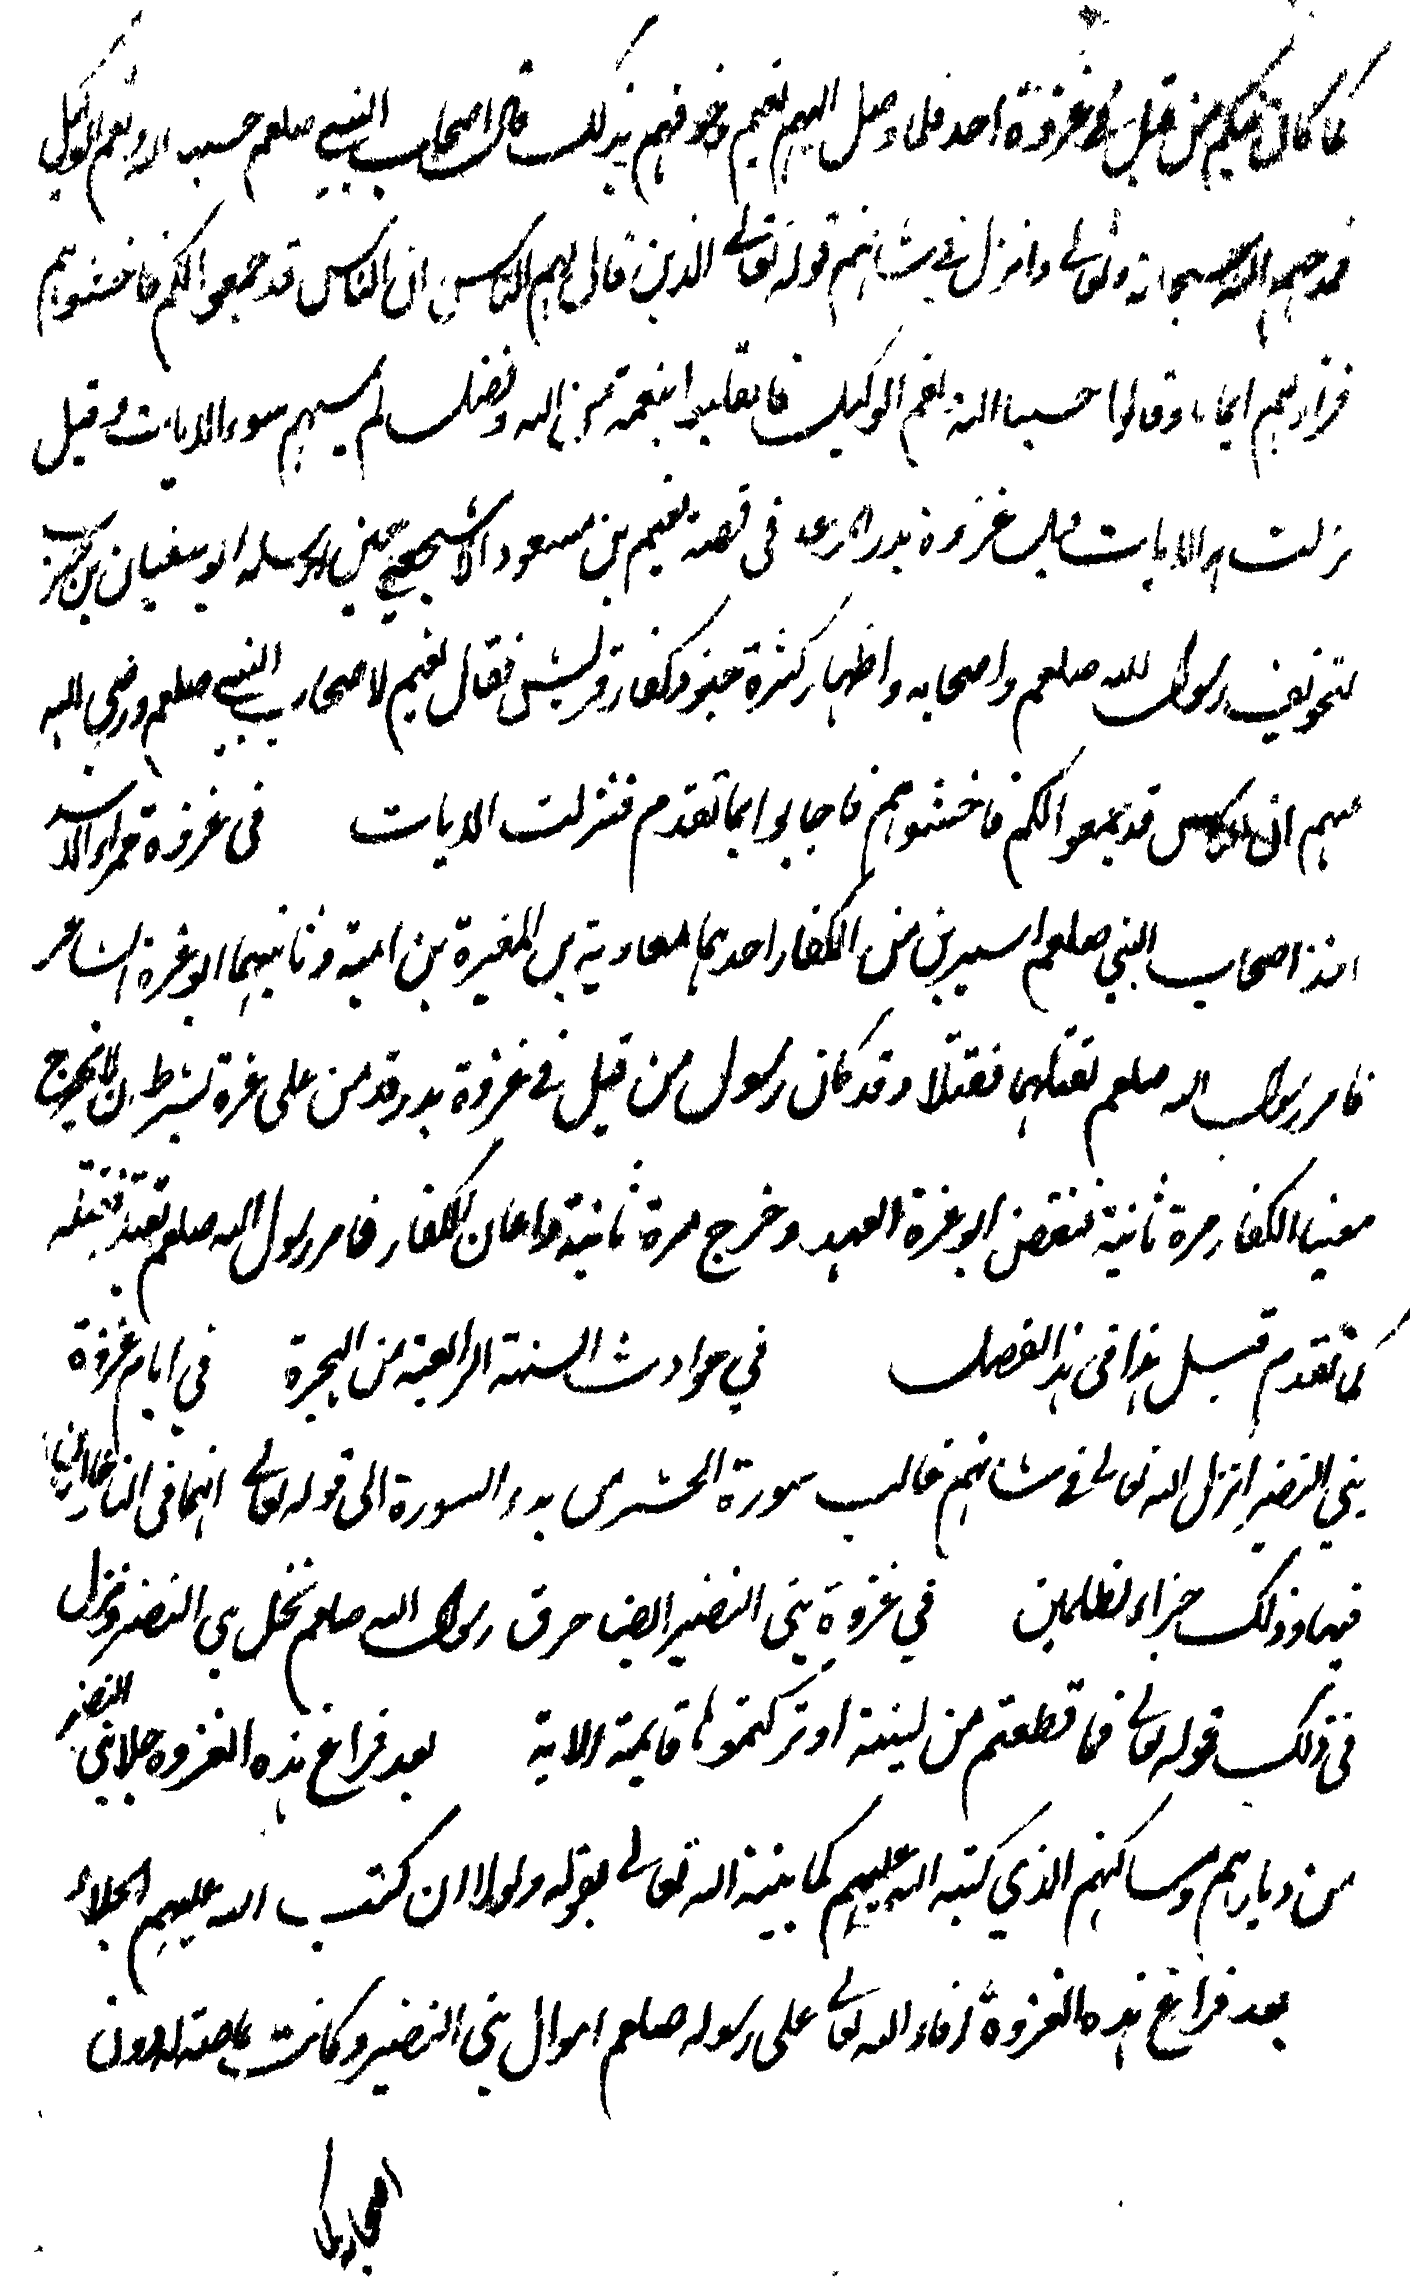 كما كان فيكم من قبل في غزوة احد فلما وصل اليهم نعيم وخوفهم بذلك قال اصحاب النبي صلعم حسبنا الله ونعم الوكيل
فمدحهم الله سبحانه وتعالى وانزل في شانهم قوله تعالى الذين قال لهم الناس ان الناس قد جمعوا لكم فاخشوهم
فزادهم ايمانا وقالوا حسبنا الله ونعم الوكيل فانقلبوا بنعمة من الله وفضل لم يمسسهم سوء الايات وقيل
نزلت الايات قبل غزوة بدر في قصة نعيم بن مسعود الاشجعي حين ارسله ابو سفيان بن حرب
لتخويف رسول الله صلعم واصحابه واظهار كثرة جنود كفار قريش فقال نعيم لاصحاب النبي صلعم ورضي الله
عنهم ان الناس قد جمعوا لكم فاخشوهم فاجابوا بما تقدم فنزلت الايات في غزوة حمراء الاسد
اخذ اصحاب النبي صلعم اسيرين من الكفار احدهما معاوية بن المغيرة بن امية وثانيهما ابو عزة الشاعر
فامر رسول الله صلعم بقتلهما فقتلا وقد كان رسول من قبل في غزوة بدر قد من على عزة بشرط ان لا يخرج
معينا الكفار مرة ثانية فنقض ابو عزة العهد وخرج مرة ثانية واعان الكفار فامر رسول الله صلعم بقتله فقتله
كما تقدم قبل هذا في هذا الفصل في حوادث السنة الرابعة من الهجرة في ايام غزوة
بني النضير انزل الله تعالى في شانهم غالب سورة الحشر من بدء السورة الى قوله تعالى انهما في النار خالدين
فيها وذلك جزاء الظلمين في غزوة بني النضير ايضا حرق رسول الله صلعم نخل بني النضير ونزل
في ذلك قوله تعالى ما قطعتم من لينة او تركتموها قايمة الاية بعد فراغ هذه الغزوة جلا بني النضير
من ديارهم ومساكنهم الذي كتبه الله عليهم كما بينه الله تعالى بقوله ولولا ان كتب الله عليهم الجلاء
بعد فراغ هذه الغزوة افاء الله تعالى على رسوله صلعم اموال بني النضير وكانت خاصة له دون